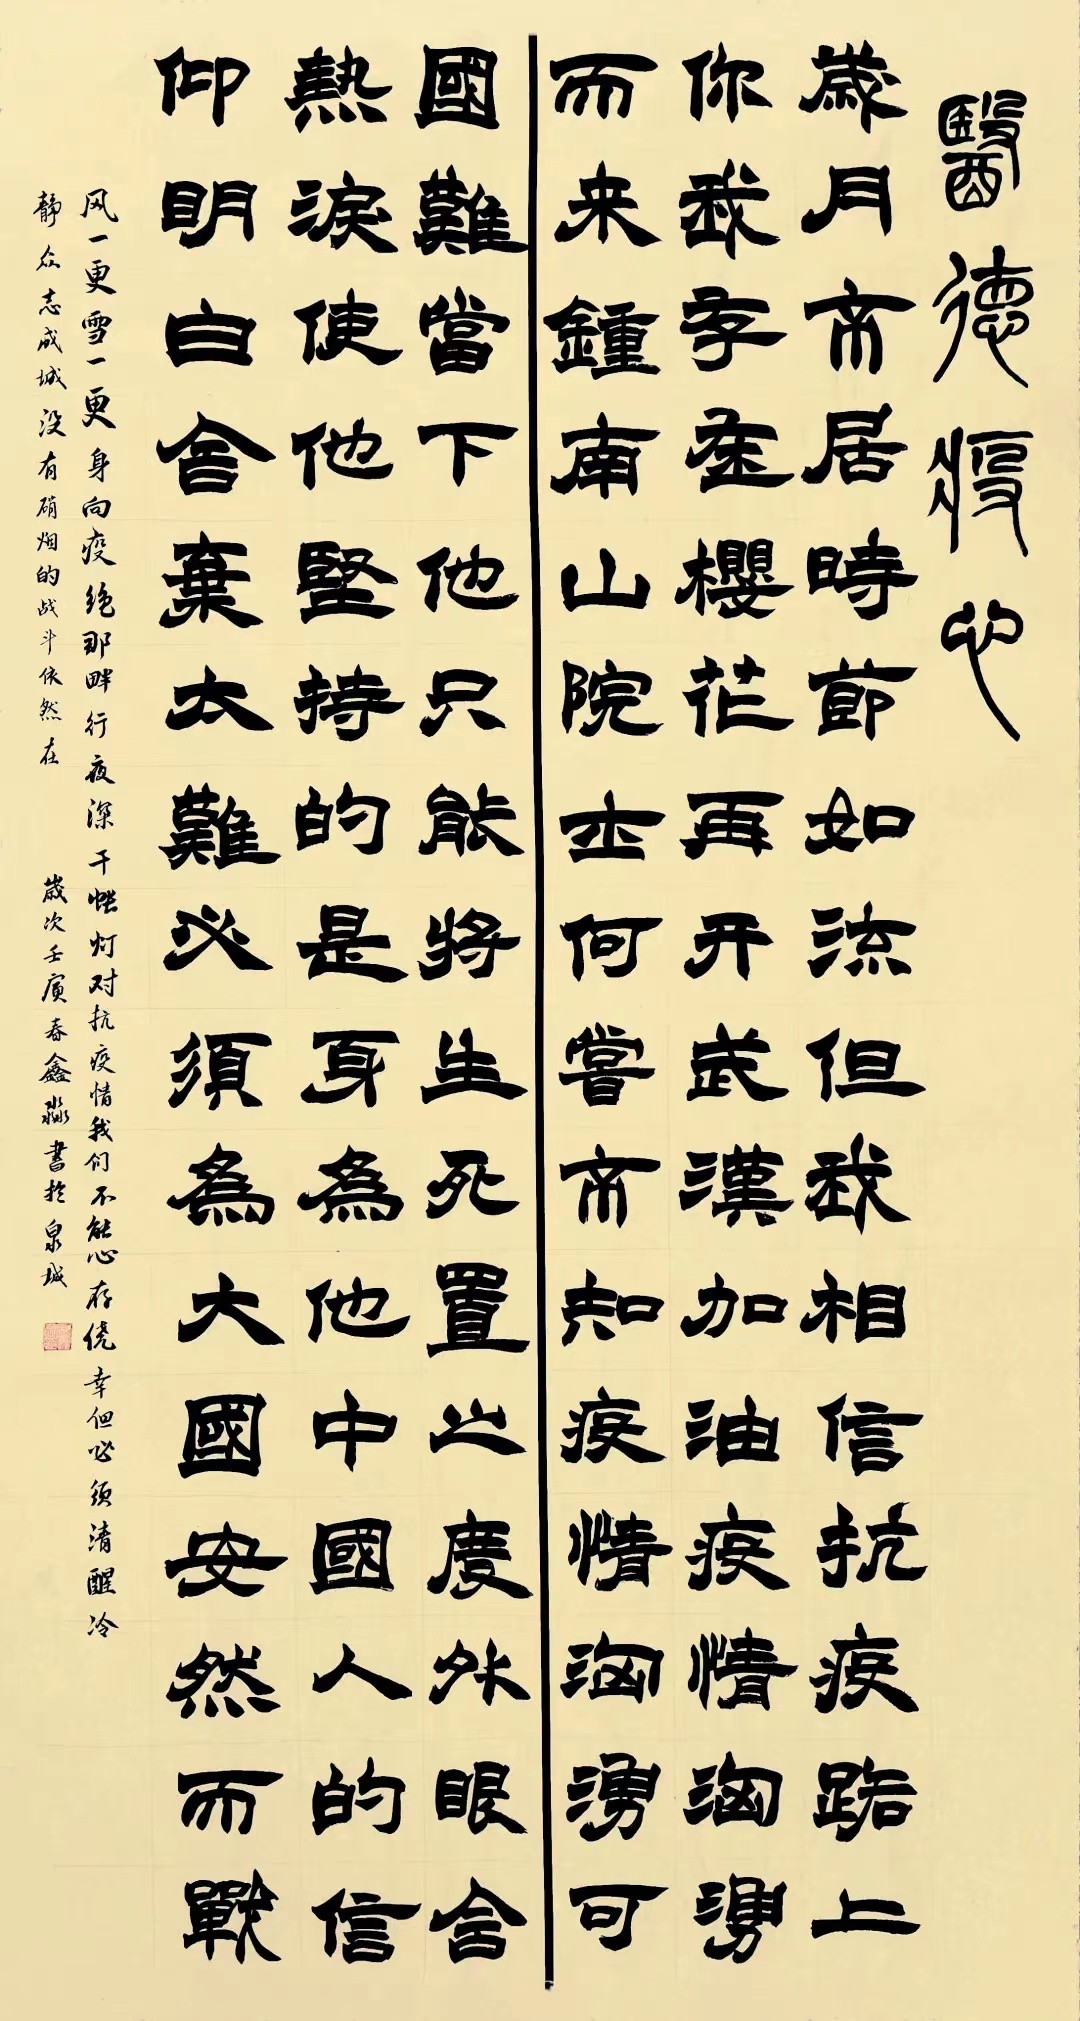 醫德疫心
歲月不居時節如流但我相信抗疫路上
你我櫻花再开武漢加油疫情洶湧
而来鍾南山院士何嘗不知疫情洶湧可
國難當下他只能將生死置之度外眼含
熱淚使他堅持的是身為他中國人的信
仰明白舍棄太難必須為大國安然而戰
风一更雪一更身向疫绝那畔行夜深千帐灯对抗疫情我们不能心存侥幸但必须清醒冷
静众志成城没有硝烟的战斗依然在 歲次壬寅春鑫淼書於泉城